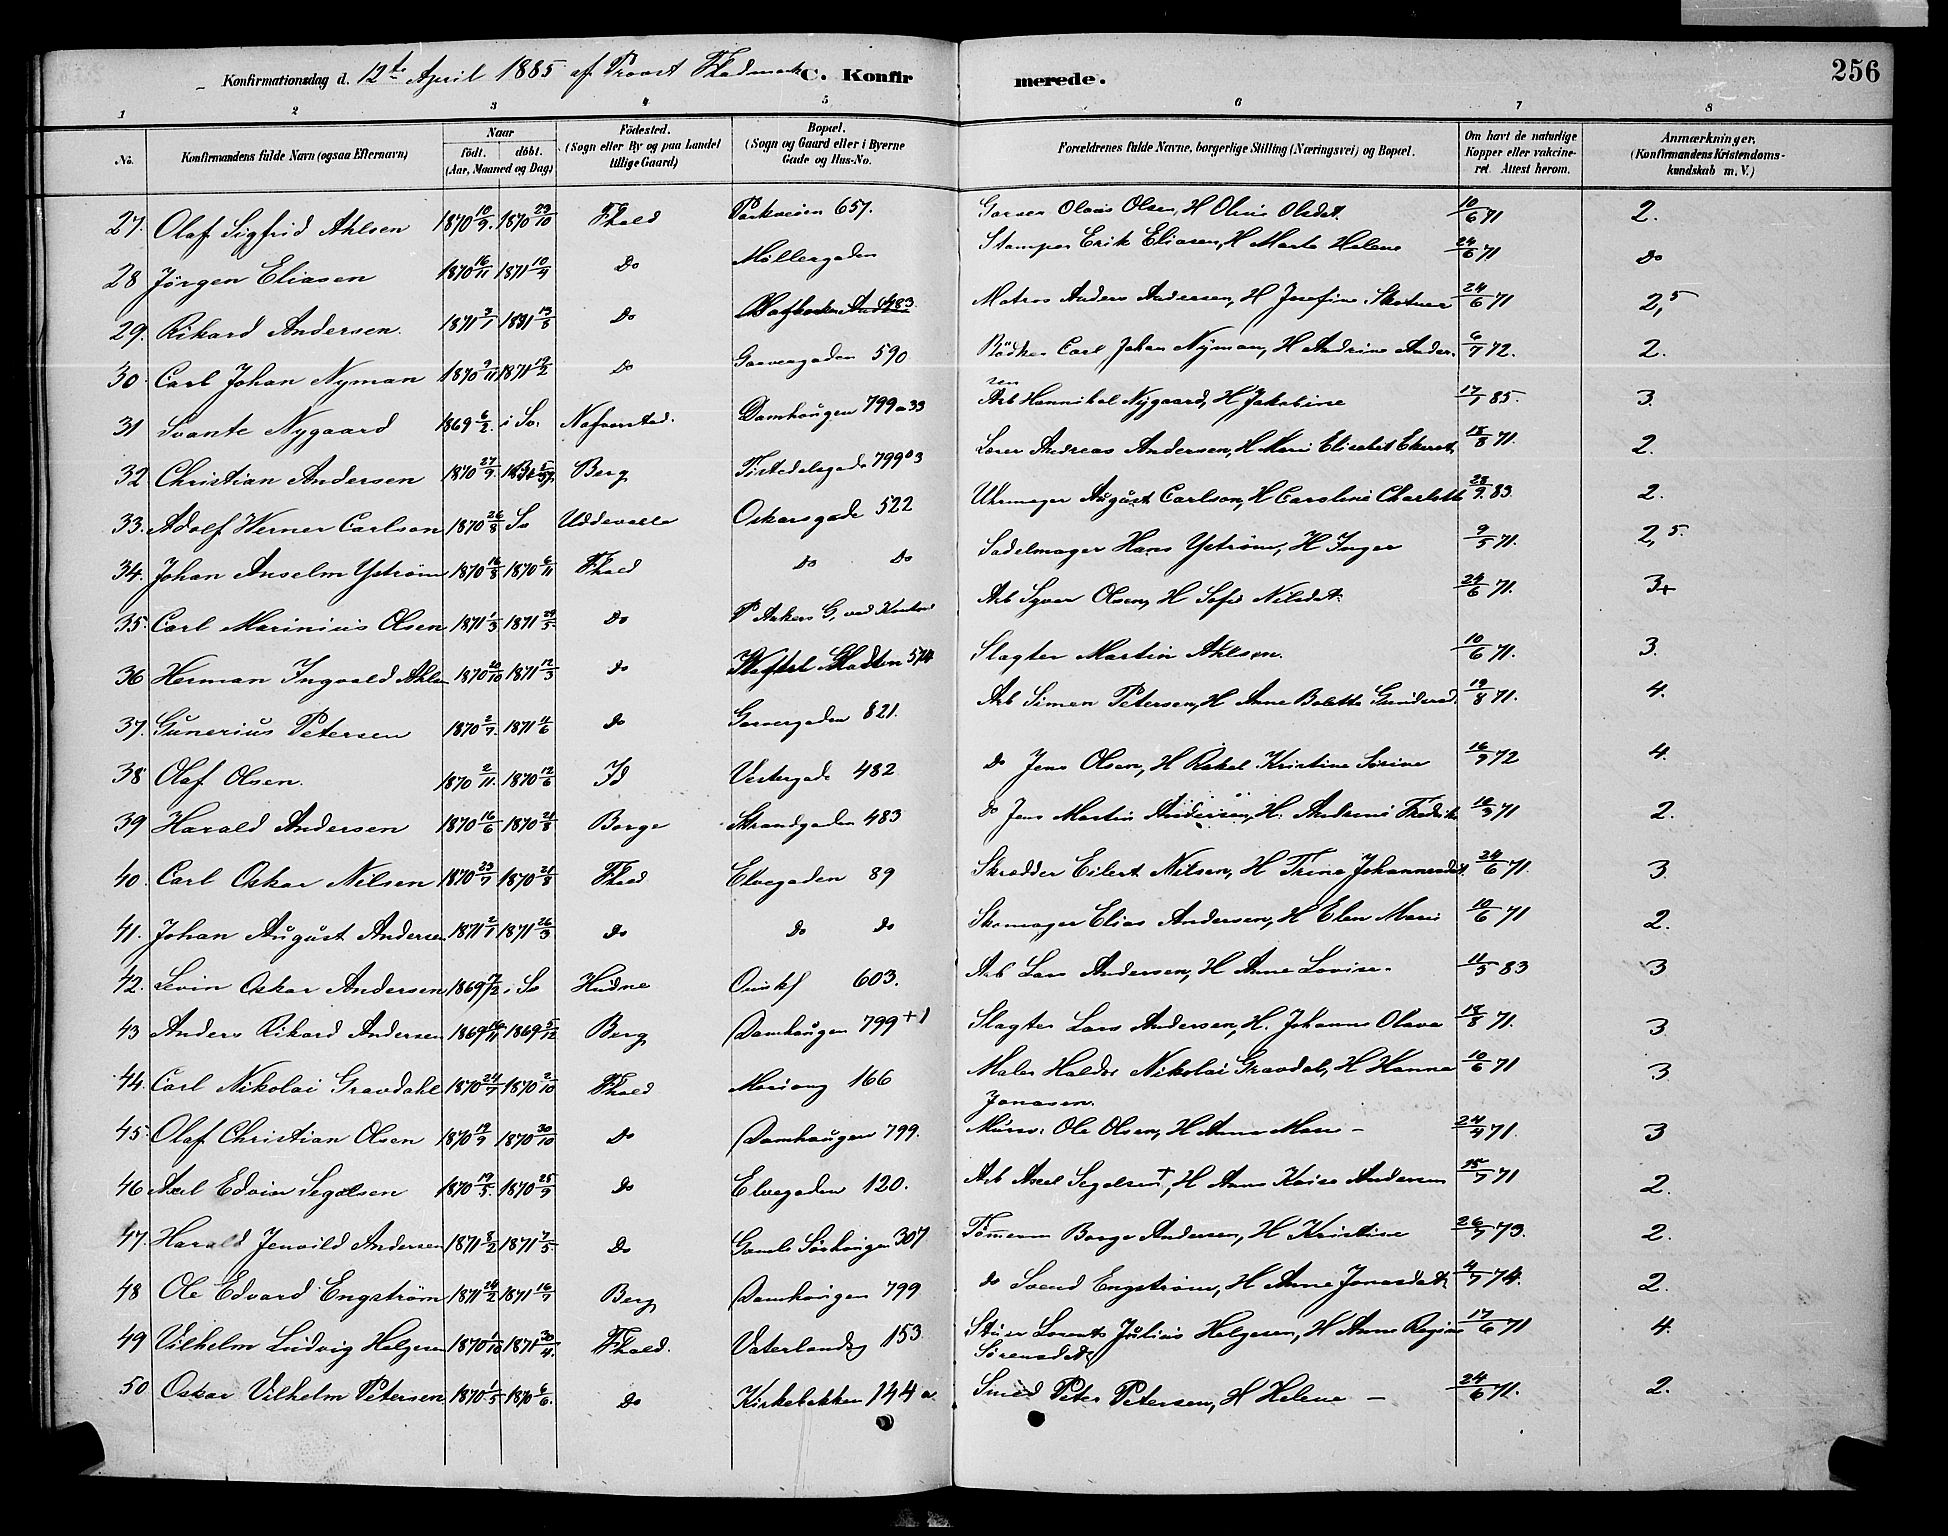 Konfirmationsdag d. 12te April 1885 af Provst C. Konfirmerede. 256
1 2 3 4 5 6 7 8
No. Konfirmandens fulde Navn (ogsaa Efternavn) Naar födt. döbt. (Aar, Maaned og Dag) Födested. (Sogn eller By og paa Landet tillige Gaard) Bopæl. (Sogn og Gaard eller i Byerne Gade og Hus-No. Forældrenes fulde Navne, borgerlige Stilling (Næringsvei) og Bopæl. Om havt de naturlige Kopper eller vakcineret. Attest herom. Anmærkninger, (Konfirmandens Kristendomskundskab m. V.)
27. Olaf Sigfrid Ahlsen 1870 10/9. 1870 23/10 Fhald Parkveien 657. Garver Olaus Olsen, H Olsdat. 10/6 71 2.
28 Jörgen Eliasen 1870 16/11 1871 10/4 Do Möllergaden Stamper Erik Eliasen, H Marte Helene 24/6 71 Do
29. Rikard Andersen. 1871 2/1 1871 13/8 Do 483 Matros Anders Andersen, H Josefine 24/6 71 2,5
30. Carl Johan Nyman 1870 9/11 1871 12/2 Do Garvergaden 590 Bödker Carl Johan Nyman, H Andrine Andersen 6/7 72. 2.
31 Svante Nygaard 1869 6/2. i Sv. Nafverstad. Damhaugen 799 a 33 Arb Hannibal Nygaard, H Jakobine 17/7 85. 3.
32 Christian Andersen 1870 27/9. Berg Tistedalsgade 799 Andreas Andersen, H Mari Elisabet 18/8 71. 2.
33. Adolf Werner Carlson 1870 26/8 Sv Uddevalla Oskarsgade 522 Uhrmager August Carlson, H Caroline Charlotte 28/9. 83. 2.
34. Johan Anselm Yström 1870 16/8 1870 6/11 Fhald Do Do Sadelmager Hans Yström, H Inger 9/5 71. 2,5.
35. Carl Marinius Olsen 1871 1/3 1871 29/5. Do P Ankers G, ved Arb Syver Olsen, H Sofie Nilsdat. 24/6 71. 3+
36 Herman Ingvald Ahlsen 1870 20/10 1871 12/3 Do 574 Slagter Martin Ahlsen. 10/6 71. 3.
37. Gunerius Petersen 1870 2/7. 1871 11/6 Do Garvergaden 821. Arb Simen Petersen, H Anne Bolette 19/8 71. 4.
38 Olaf Olsen. 1870 2/11. 1870 12/6 Id Vestergade 482 Do Jens Olsen, H Rakel Kristine Sörine 16/9 72 4.
39 Harald Andersen 1870 16/6 1870 21/8 Borge Strandgaden 483 Do Jens Martin Andersen, H. Andrine Fredrikke 10/3 71 2.
40. Carl Oskar Nilsen 1870 23/7 1870 21/8 Fhald Elvegaden 89 Skrædder Eilert Nilsen, H Trine Johannesdat. 24/6 71. 3.
41. Johan August Andersen 1871 2/1 1871 26/3 Do Do Do Skomager Elias Andersen, H Elen Marie 10/6 71 2.
42. Levin Oskar Andersen 1869 7/2 i Sv 603. Arb Lars Andersen, H Anne Lovise. 11/5 83 3
43 Anders Rikard Andersen 1869 16/11 1869 5/12 Berg Damhaugen 799 +1 Slagter Lars Andersen, H. Johanne Olava 18/8 71. 3
44. Carl Nikolai Gravdahl 1870 24/7 1870 2/10 Fhald 166 Maler Haldor Nikolai Gravdal, H Hanna Jonasen. 10/6 71 3
45. Olaf Christian Olsen 1870 19/9 1870 30/10 Do Damhaugen 799. Murer Ole Olsen, H Anne Mari – 24/4 71. 3
46 Axel Edvin Segelsen 1870 19/5. 1870 25/9 Do Elvegaden 120. Arb Axel Segelsen †, H Anne Andersen 15/7 71 2.
47. Harald Jenvild Andersen 1871 8/2 1871 7/5 Do Gamle 307 Tömerm Borge Andersen, H Kristine 26/7 73. 2.
48 Ole Edvard Engström 1871 24/2 1871 16/7 Berg Damhaugen 799 Do Svend Engström, H Anne Jonasdat. 4/7 74. 2.
49 Vilhelm Ludvig Helgesen 1870 1/10 1871 30/4. Fhald. Vaterlandsg 153 Lorents Julius Helgesen, H Anne Regine Sörensdat 17/6 71 4.
50 Oskar Vilhelm Petersen 1870 1/5 1870 6/6. Do Kirkebakken 144 a. Smed Peter Petersen, H Helene – 24/6 71. 2.